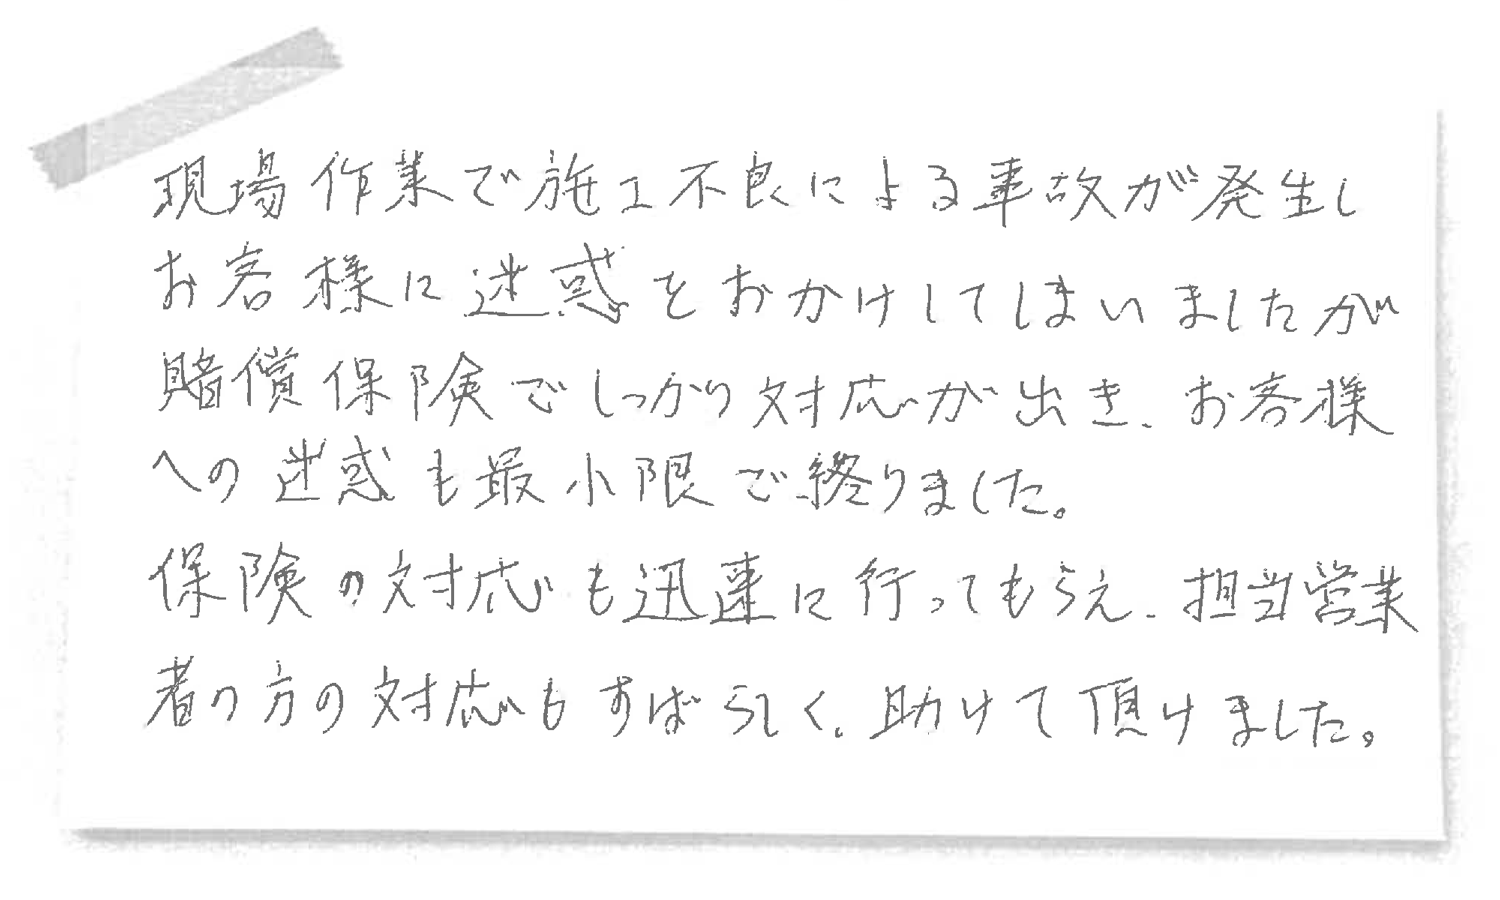 現場作業で施工不良による事故が発生し
お客様に迷惑をおかけしてしまいましたが
賠償保険でしっかり対応が出き、お客様
への迷惑も最小限で終りました。
保険の対応も迅速に行ってもらえ、担当営業
者の方の対応もすばらしく、助けて頂けました。